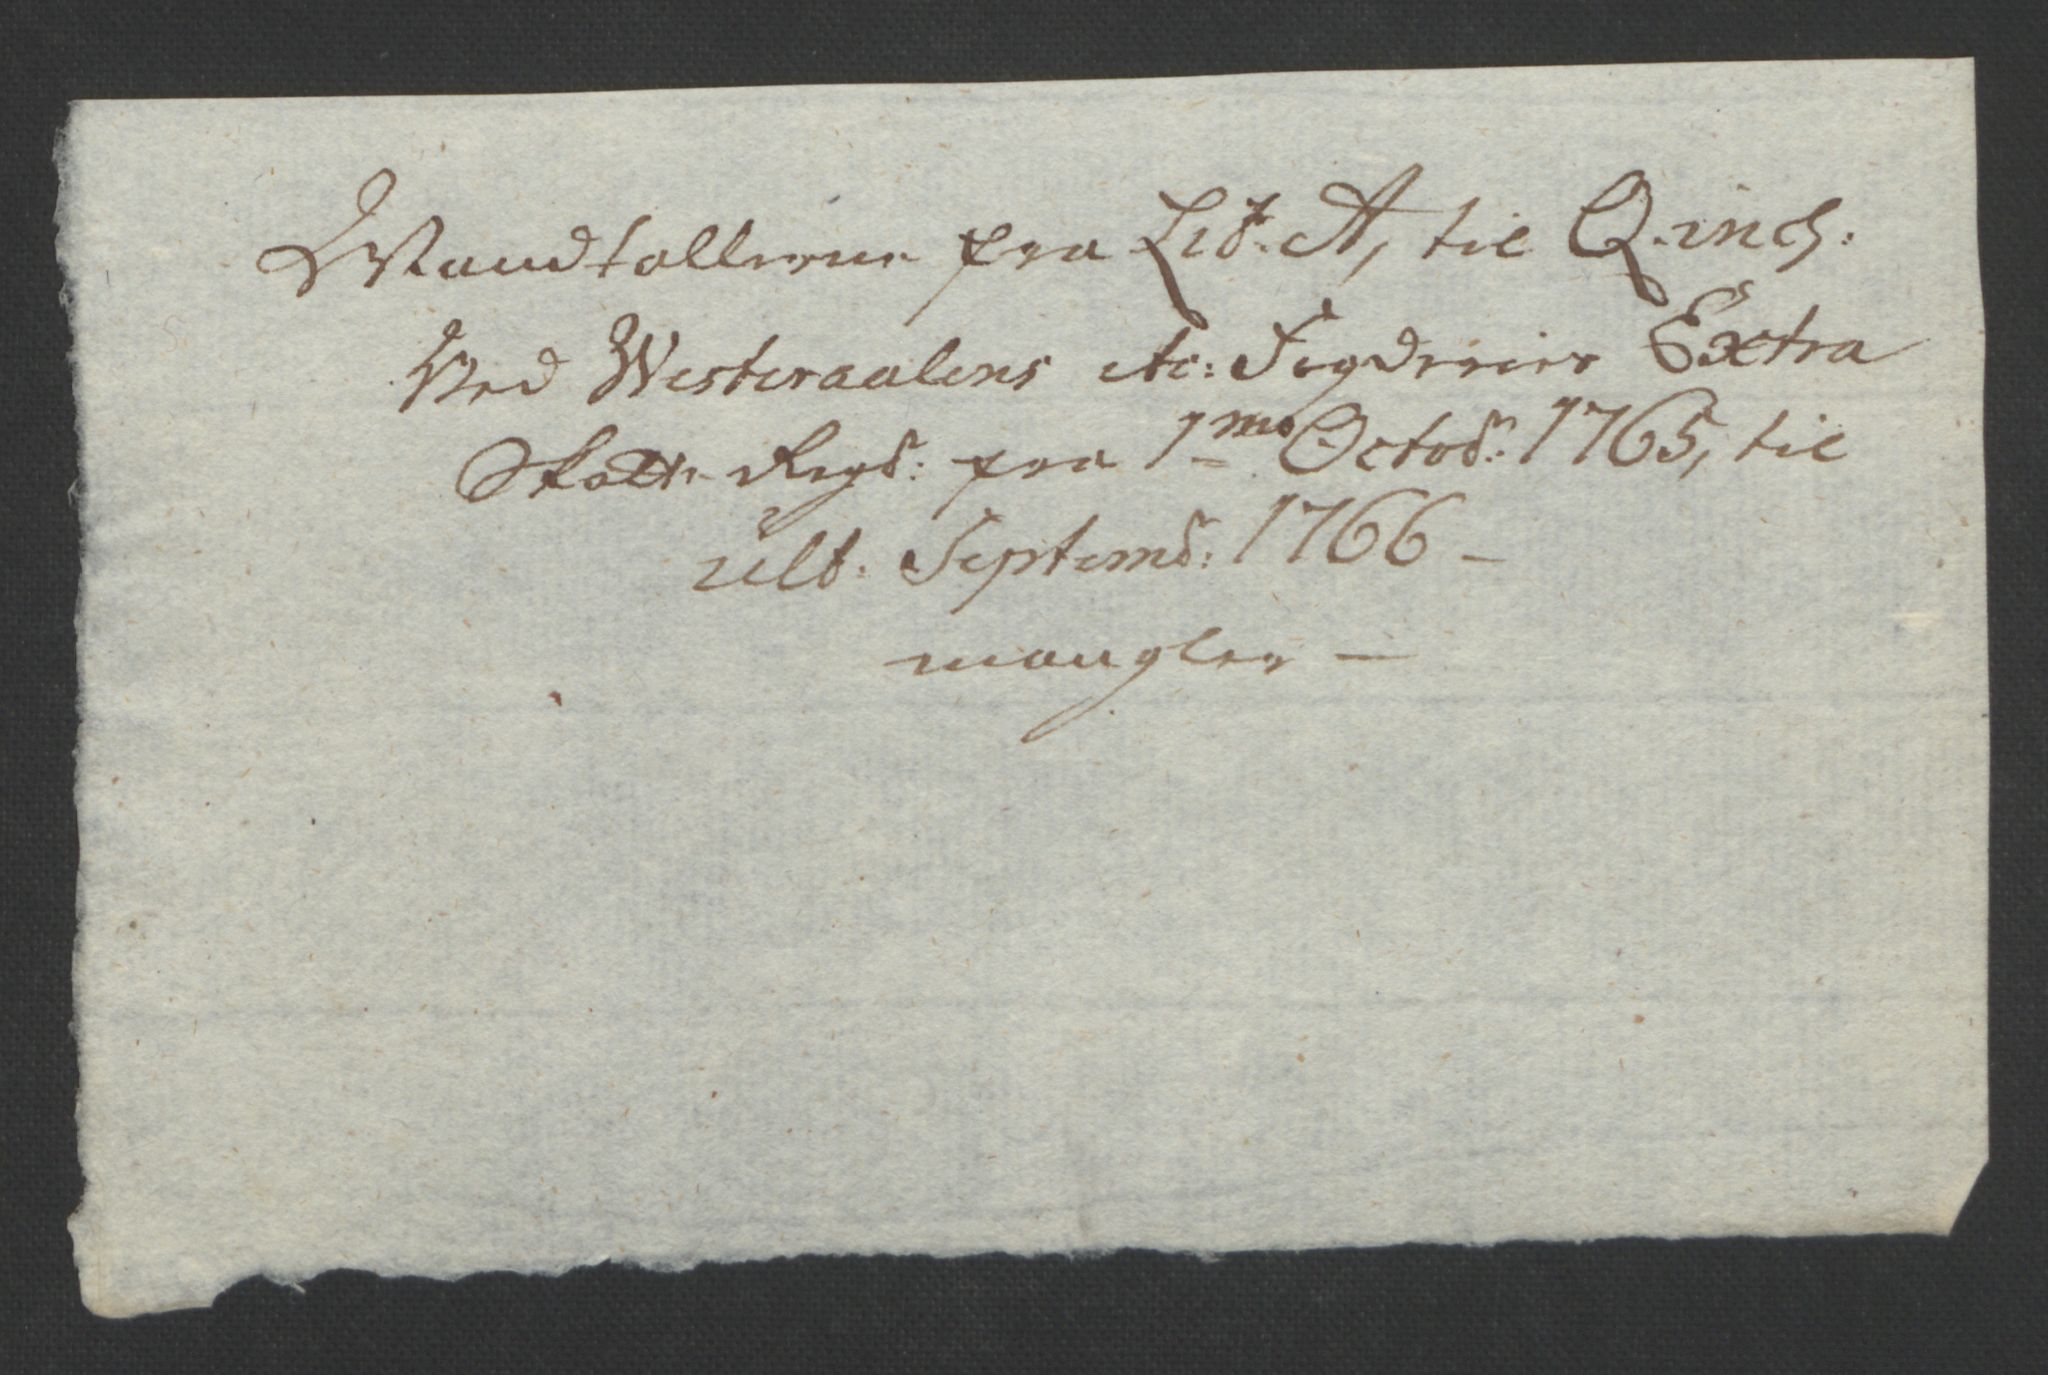 Mandtallerne fra Litr. A, til Q. incl:
Ved Westeraalens etc: Fogderies Extra
Skatte Regnb: fra 1mo Octobr: 1765, til
ult. Septembr: 1766 –
mangler —